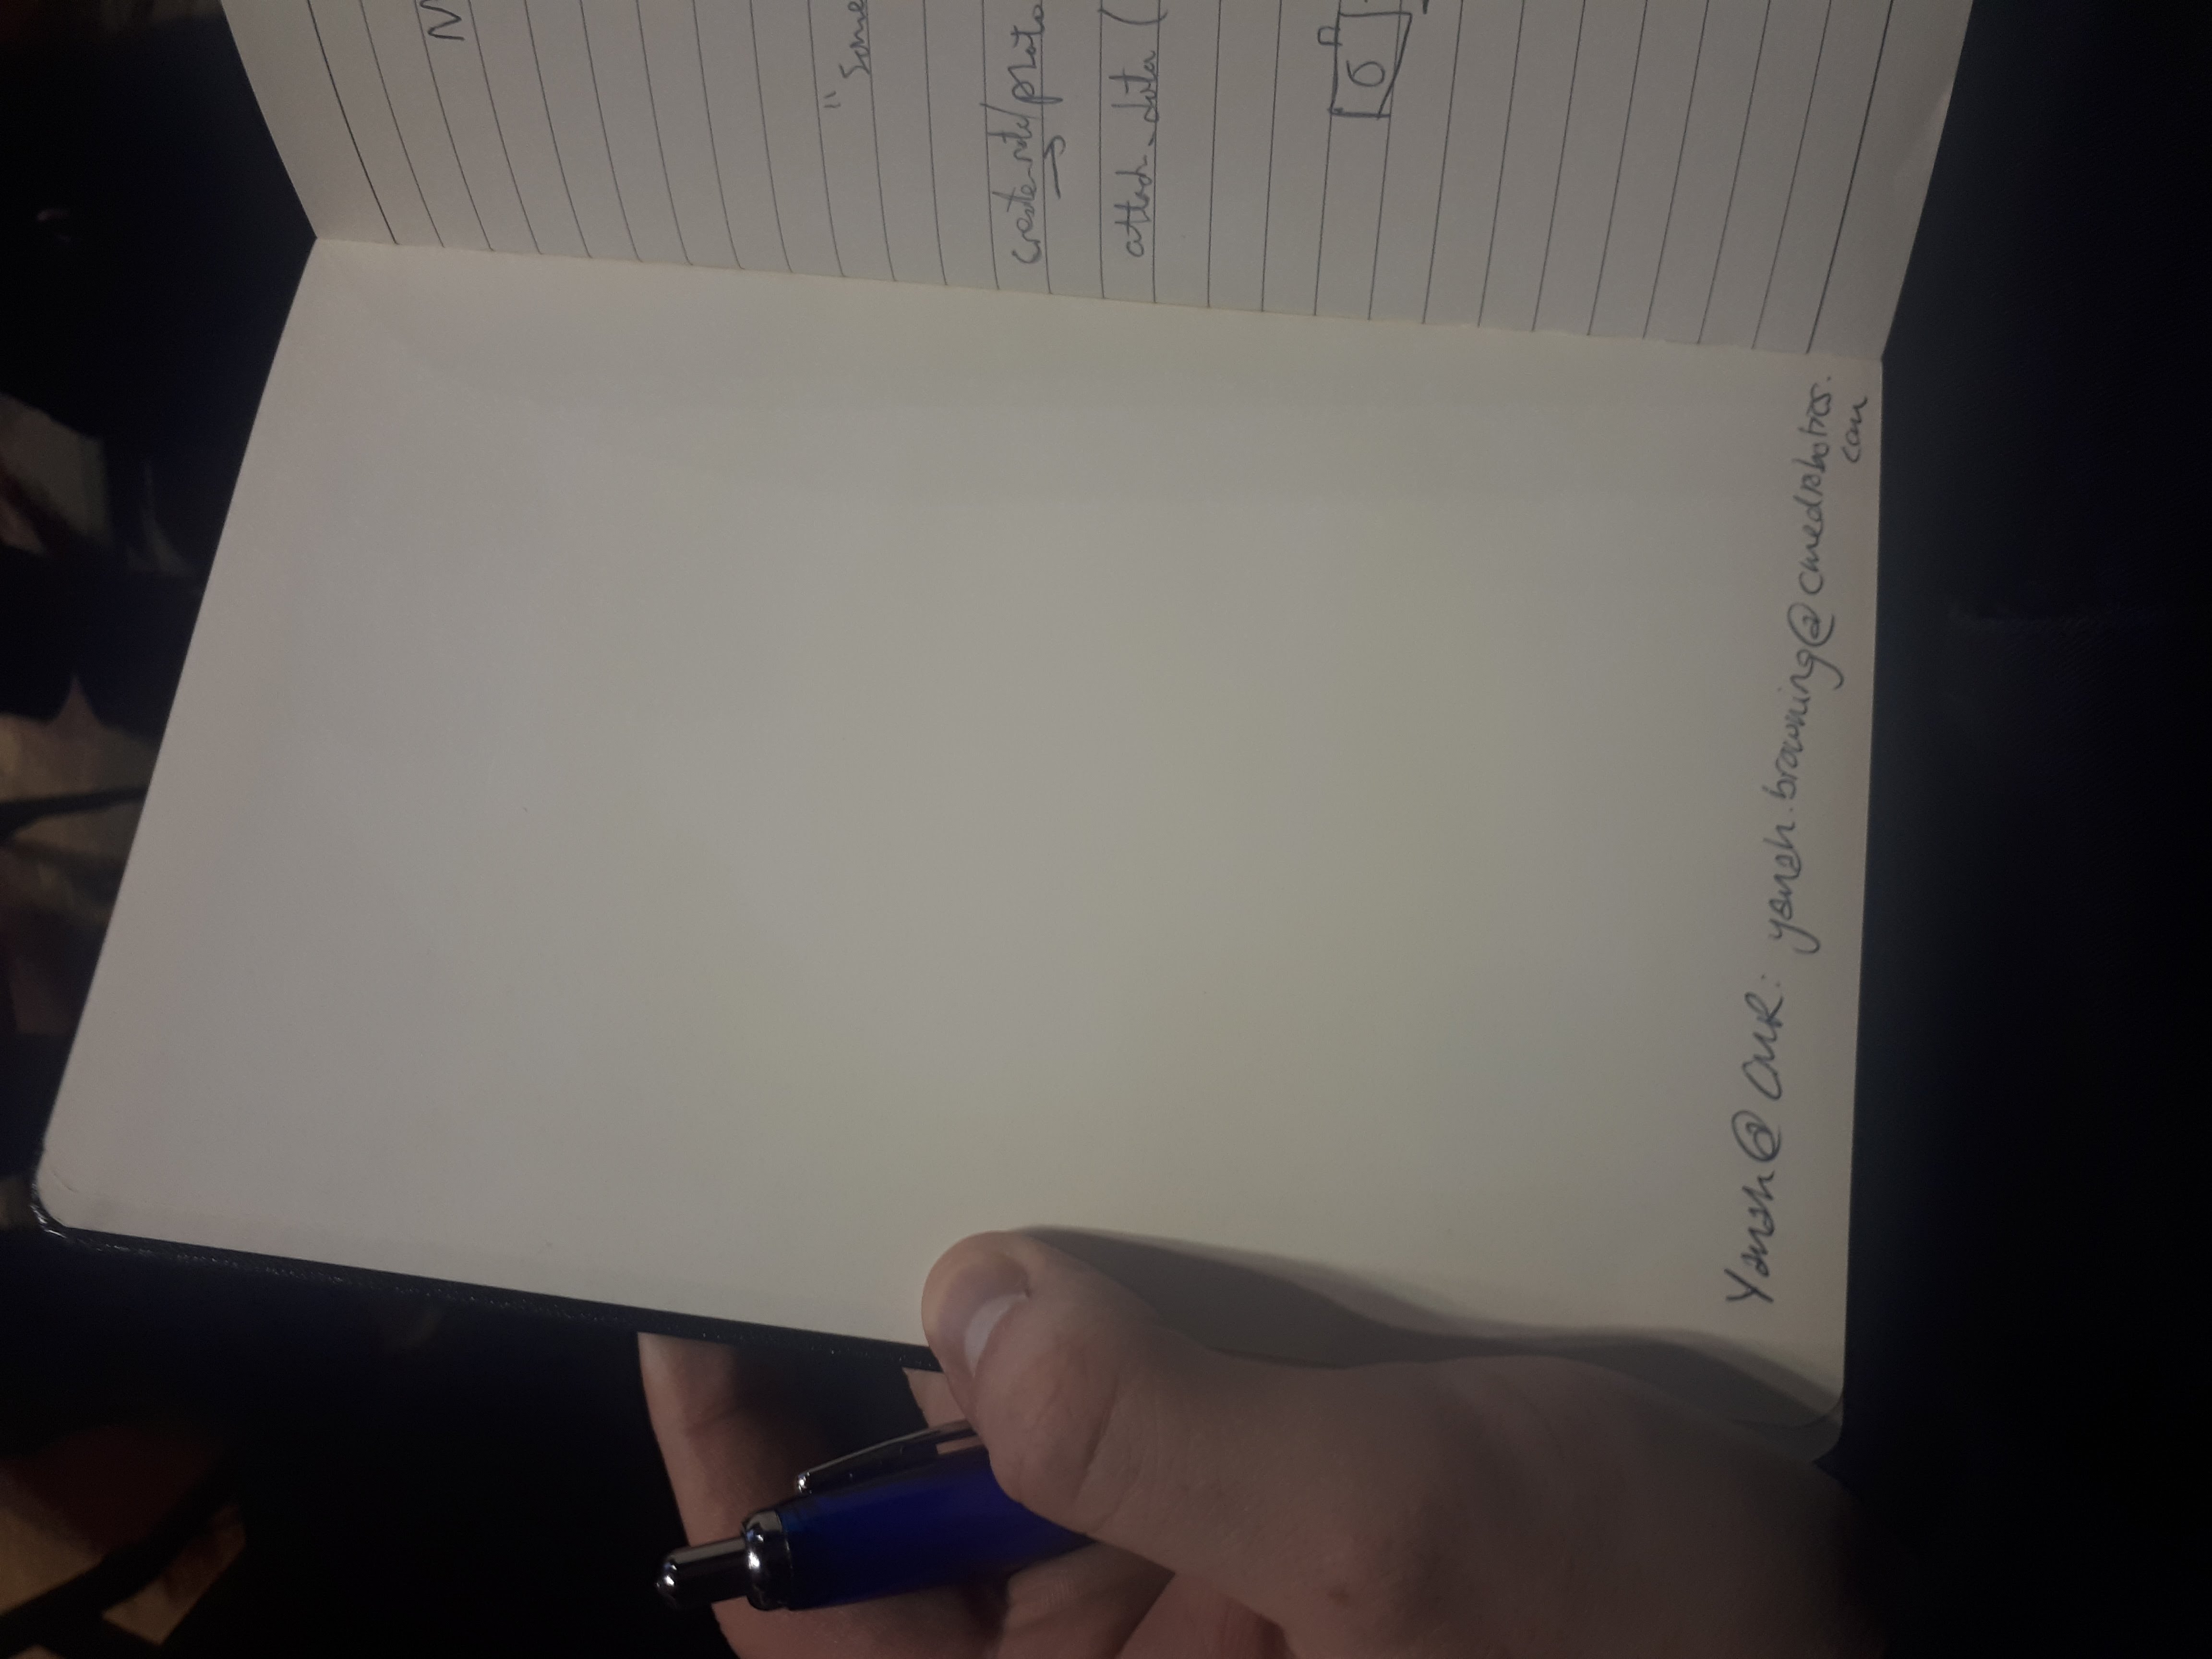 Yanah@ CMR: yanah.browning@cmedrobotics.
com
N
"Some
create_note/photo
attach_data (